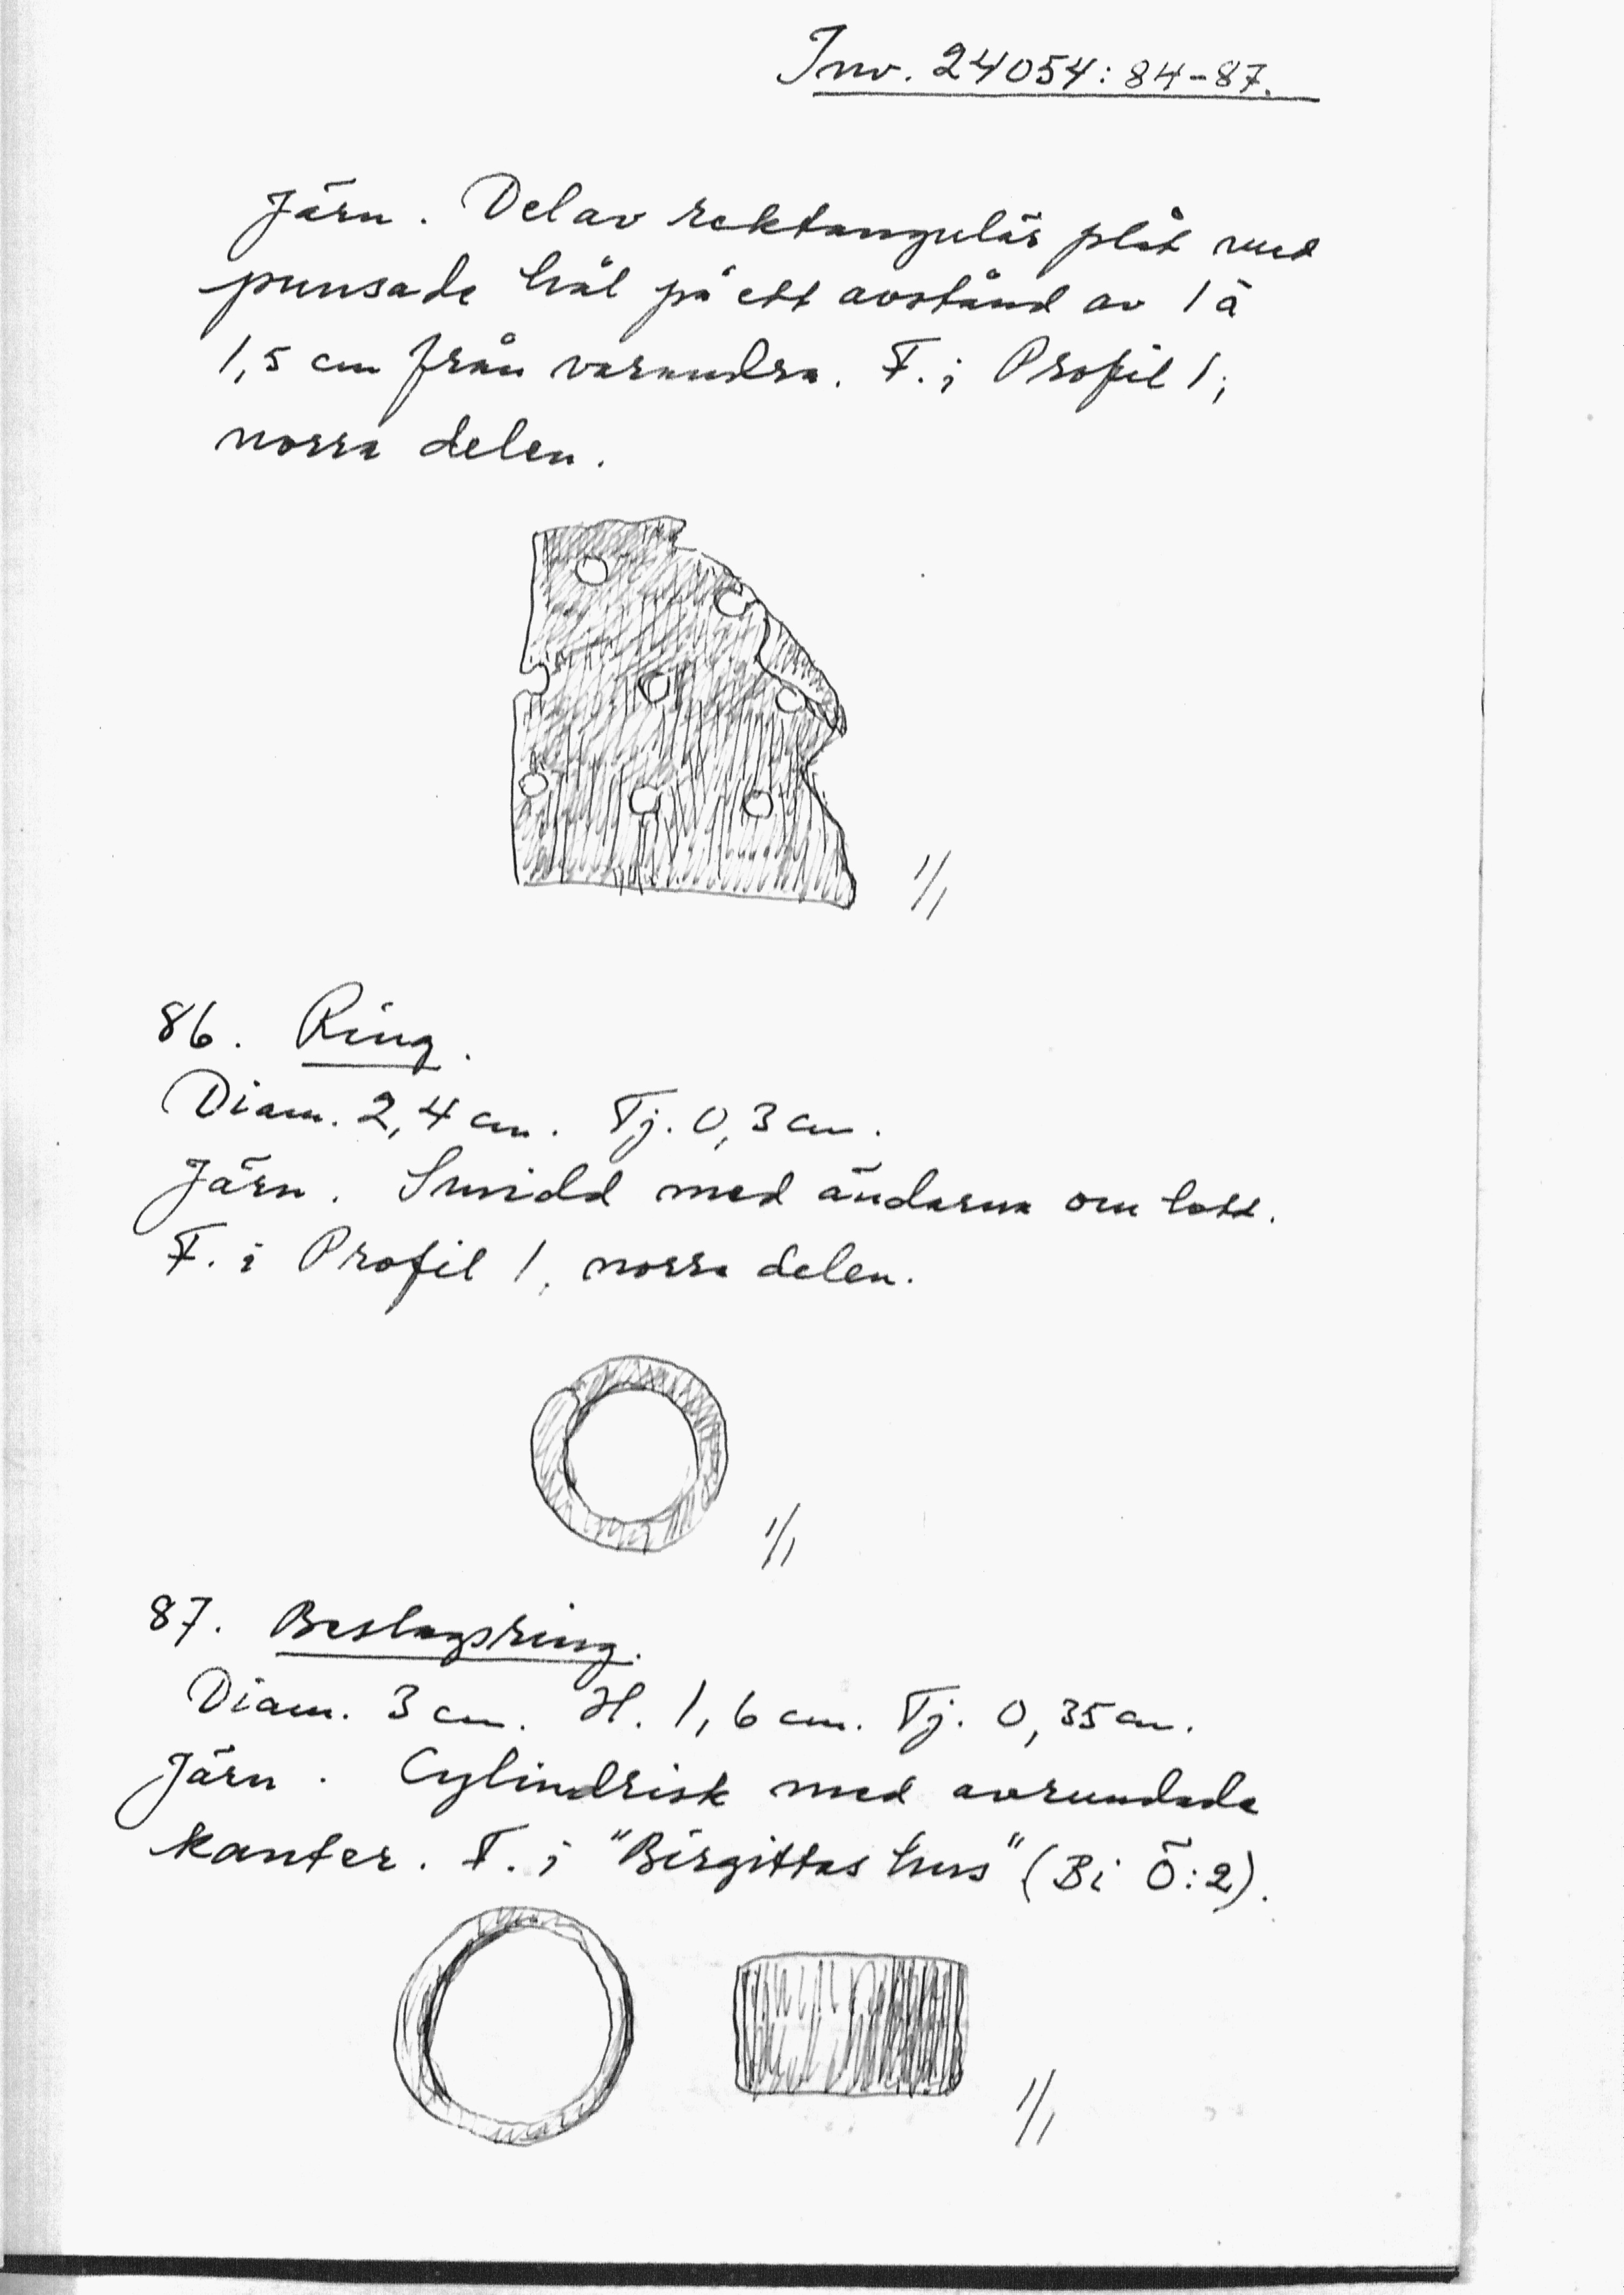 Inv. 24054:84-87.
Järn. Del av rektangulär plåt med
punsade hål på ett avstånd av 1 à
1,5 cm från varandra. F. i Profil 1,
norra delen.
1/1
86. Ring.
Diam. 2,4 cm. Tj. 0,3 cm.
Järn. Smidd med ändarna om lott.
F. i Profil 1, norra delen.
1/1
87. Beslagsring.
Diam. 3 cm. H. 1,6 cm. Tj. 0,35 cm.
Järn. Cylindrisk med avrundade
kanter. F. i "Birgittas hus" (Bi Ö:2).
1/1